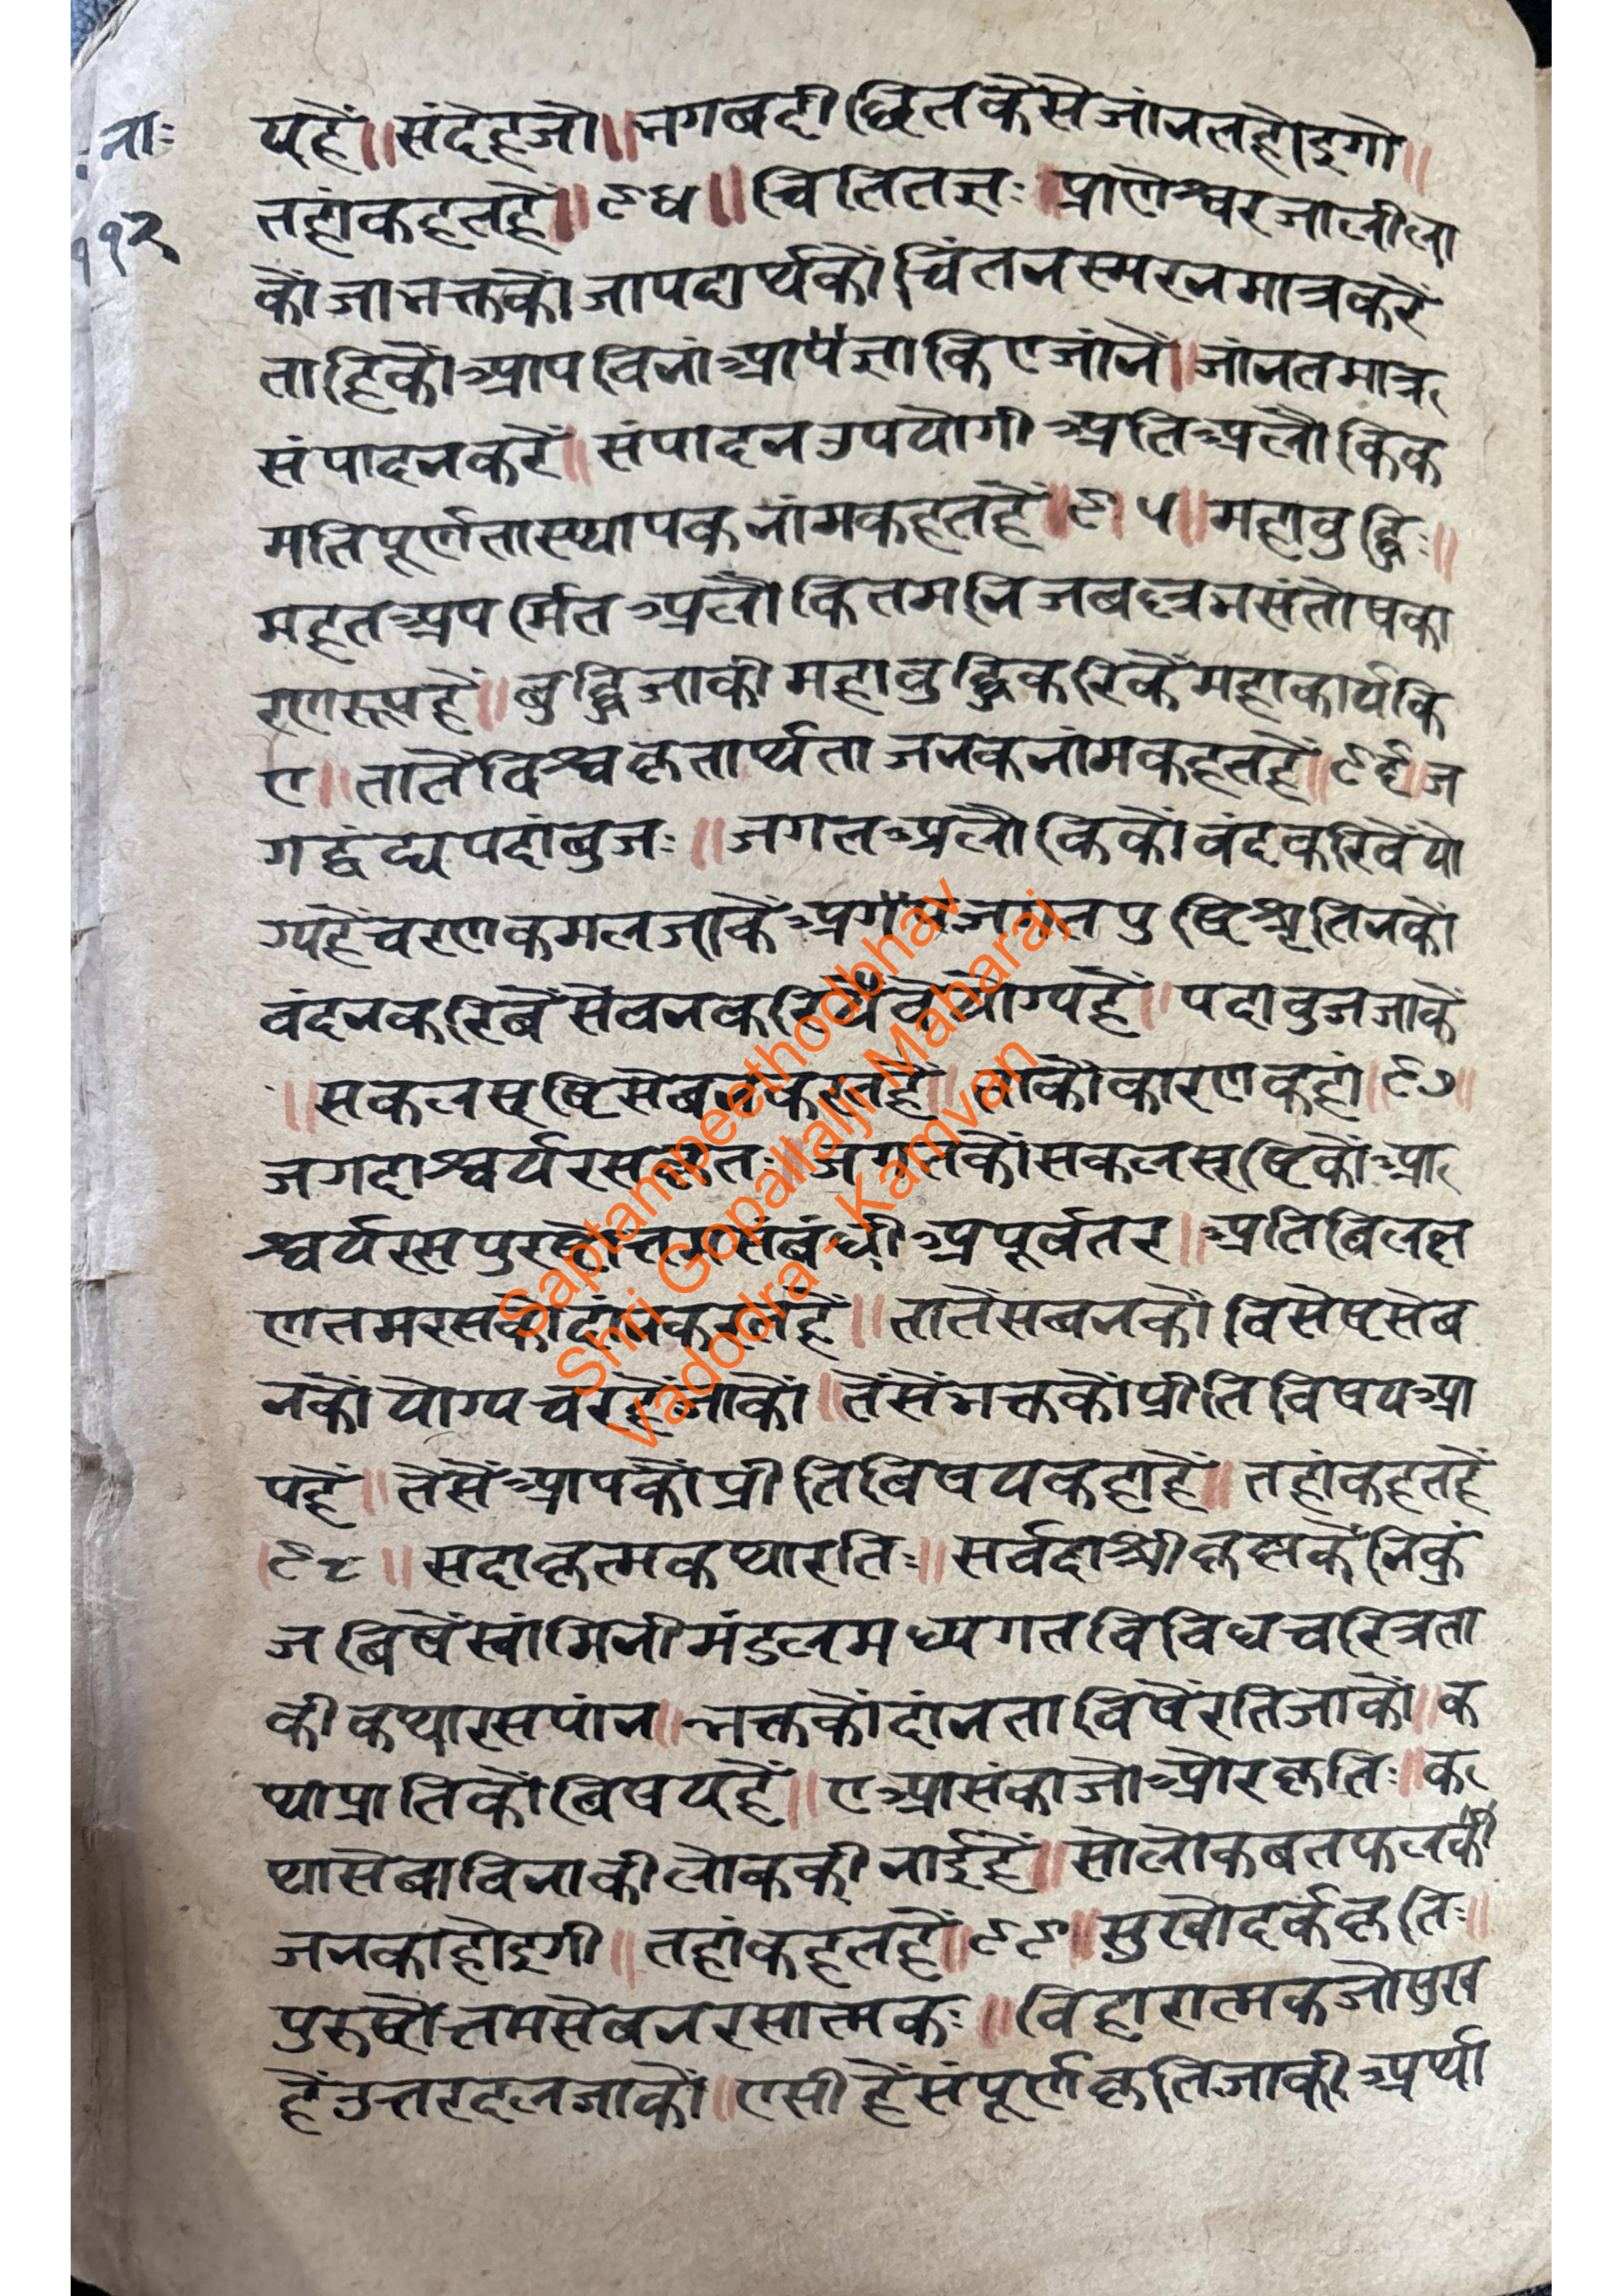 नाः
११२
यहैं॥संदेहजो॥भगबदीछितकैसेजांनतहोइगो॥
तहांकहतहैं॥९४॥चितितज्ञः॥प्राणेश्वरजालीला
कौंजाभक्तकौंजापदार्थकौंचिंतनस्मरनमात्रकरें
ताहिकौंआपविनांआपज्ञाकिएजांनें॥जांनतमात्र
संपादनकरें॥संपादनउपयोगीअतिअलौकिक
मतिपूर्णतास्थापकनांमकहतहैं॥९५॥महाबुद्धिः॥
महतअपर्मितअलौकितमनिजबह्त्रभसंतोषका
रणरूपहैं॥बुद्धिजाकीमहाबुद्धिकरिकेंमहाकार्यकि
ए॥तातेंविश्वकृतार्थताजनकनांमकहतहैं॥९६॥ज
गद्वंद्यपदांबुजः॥जगतअलौकिकौंवंदकरिवेंयो
ग्यहैंचरणकमलजाकेंअगतजगतपुष्टिश्रृतिनकौं
वंदनकरिबेंसेवनकरिबेंयोग्यहैं॥पदाबुजजाकें
॥सकलसृष्टिसेबनकरतहैं॥ताकौकारणकहां॥९७॥
जगदाश्चर्यरसकृतः॥जगतकौंसकलसृष्टिकौंआ
श्चर्यरसपुरषोत्तमसंबंधीअपूर्वतर॥अतिबिलक्ष
णतमरसकौंदांनकरतहैं॥तातेंसबनकौंविसेषसेब
नकौंयोग्यचरहैंजाकौं॥तेंसेंभक्तकौंप्रीतिविषयआ
पहैं॥तेसेंआपकौंप्रीतिबिषयकहाहैं॥तहांकहतहैं
॥९८॥सदाकृत्मकथारतिः॥सर्वदाश्रीकृष्णकेंनिकुं
जबिषेंस्वांमिनीमंडलमध्यगतविविधचरित्रता
कीकथारसपांन॥भक्तकौंदांनताविषेंरतिजाकौं॥क
थाप्रातिकौंबिषयहैं॥एआसंकाजोऔरकृतिः॥क
थासेबाविनाकीलोककीनांईहैं॥सोलोकबतफलकी
जनकाहोइगी॥तहांकहतहैं॥९९॥सुखोदर्ककृतिः॥
पुरुषोत्तमसेबनरसात्मकः॥विहारात्मकजोसुख
हैंउत्तरदलजाकौं॥एसीहैंसंपूर्णकृतिजाकीअर्था
Saptampeethodbhav
Shri Gopallalji Maharaj
Vadodra - Kamvan